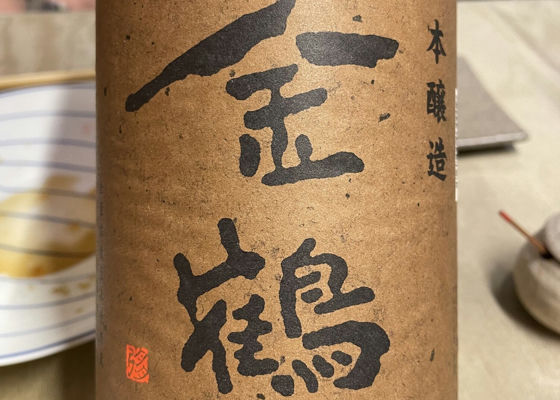 本醸造
金鶴